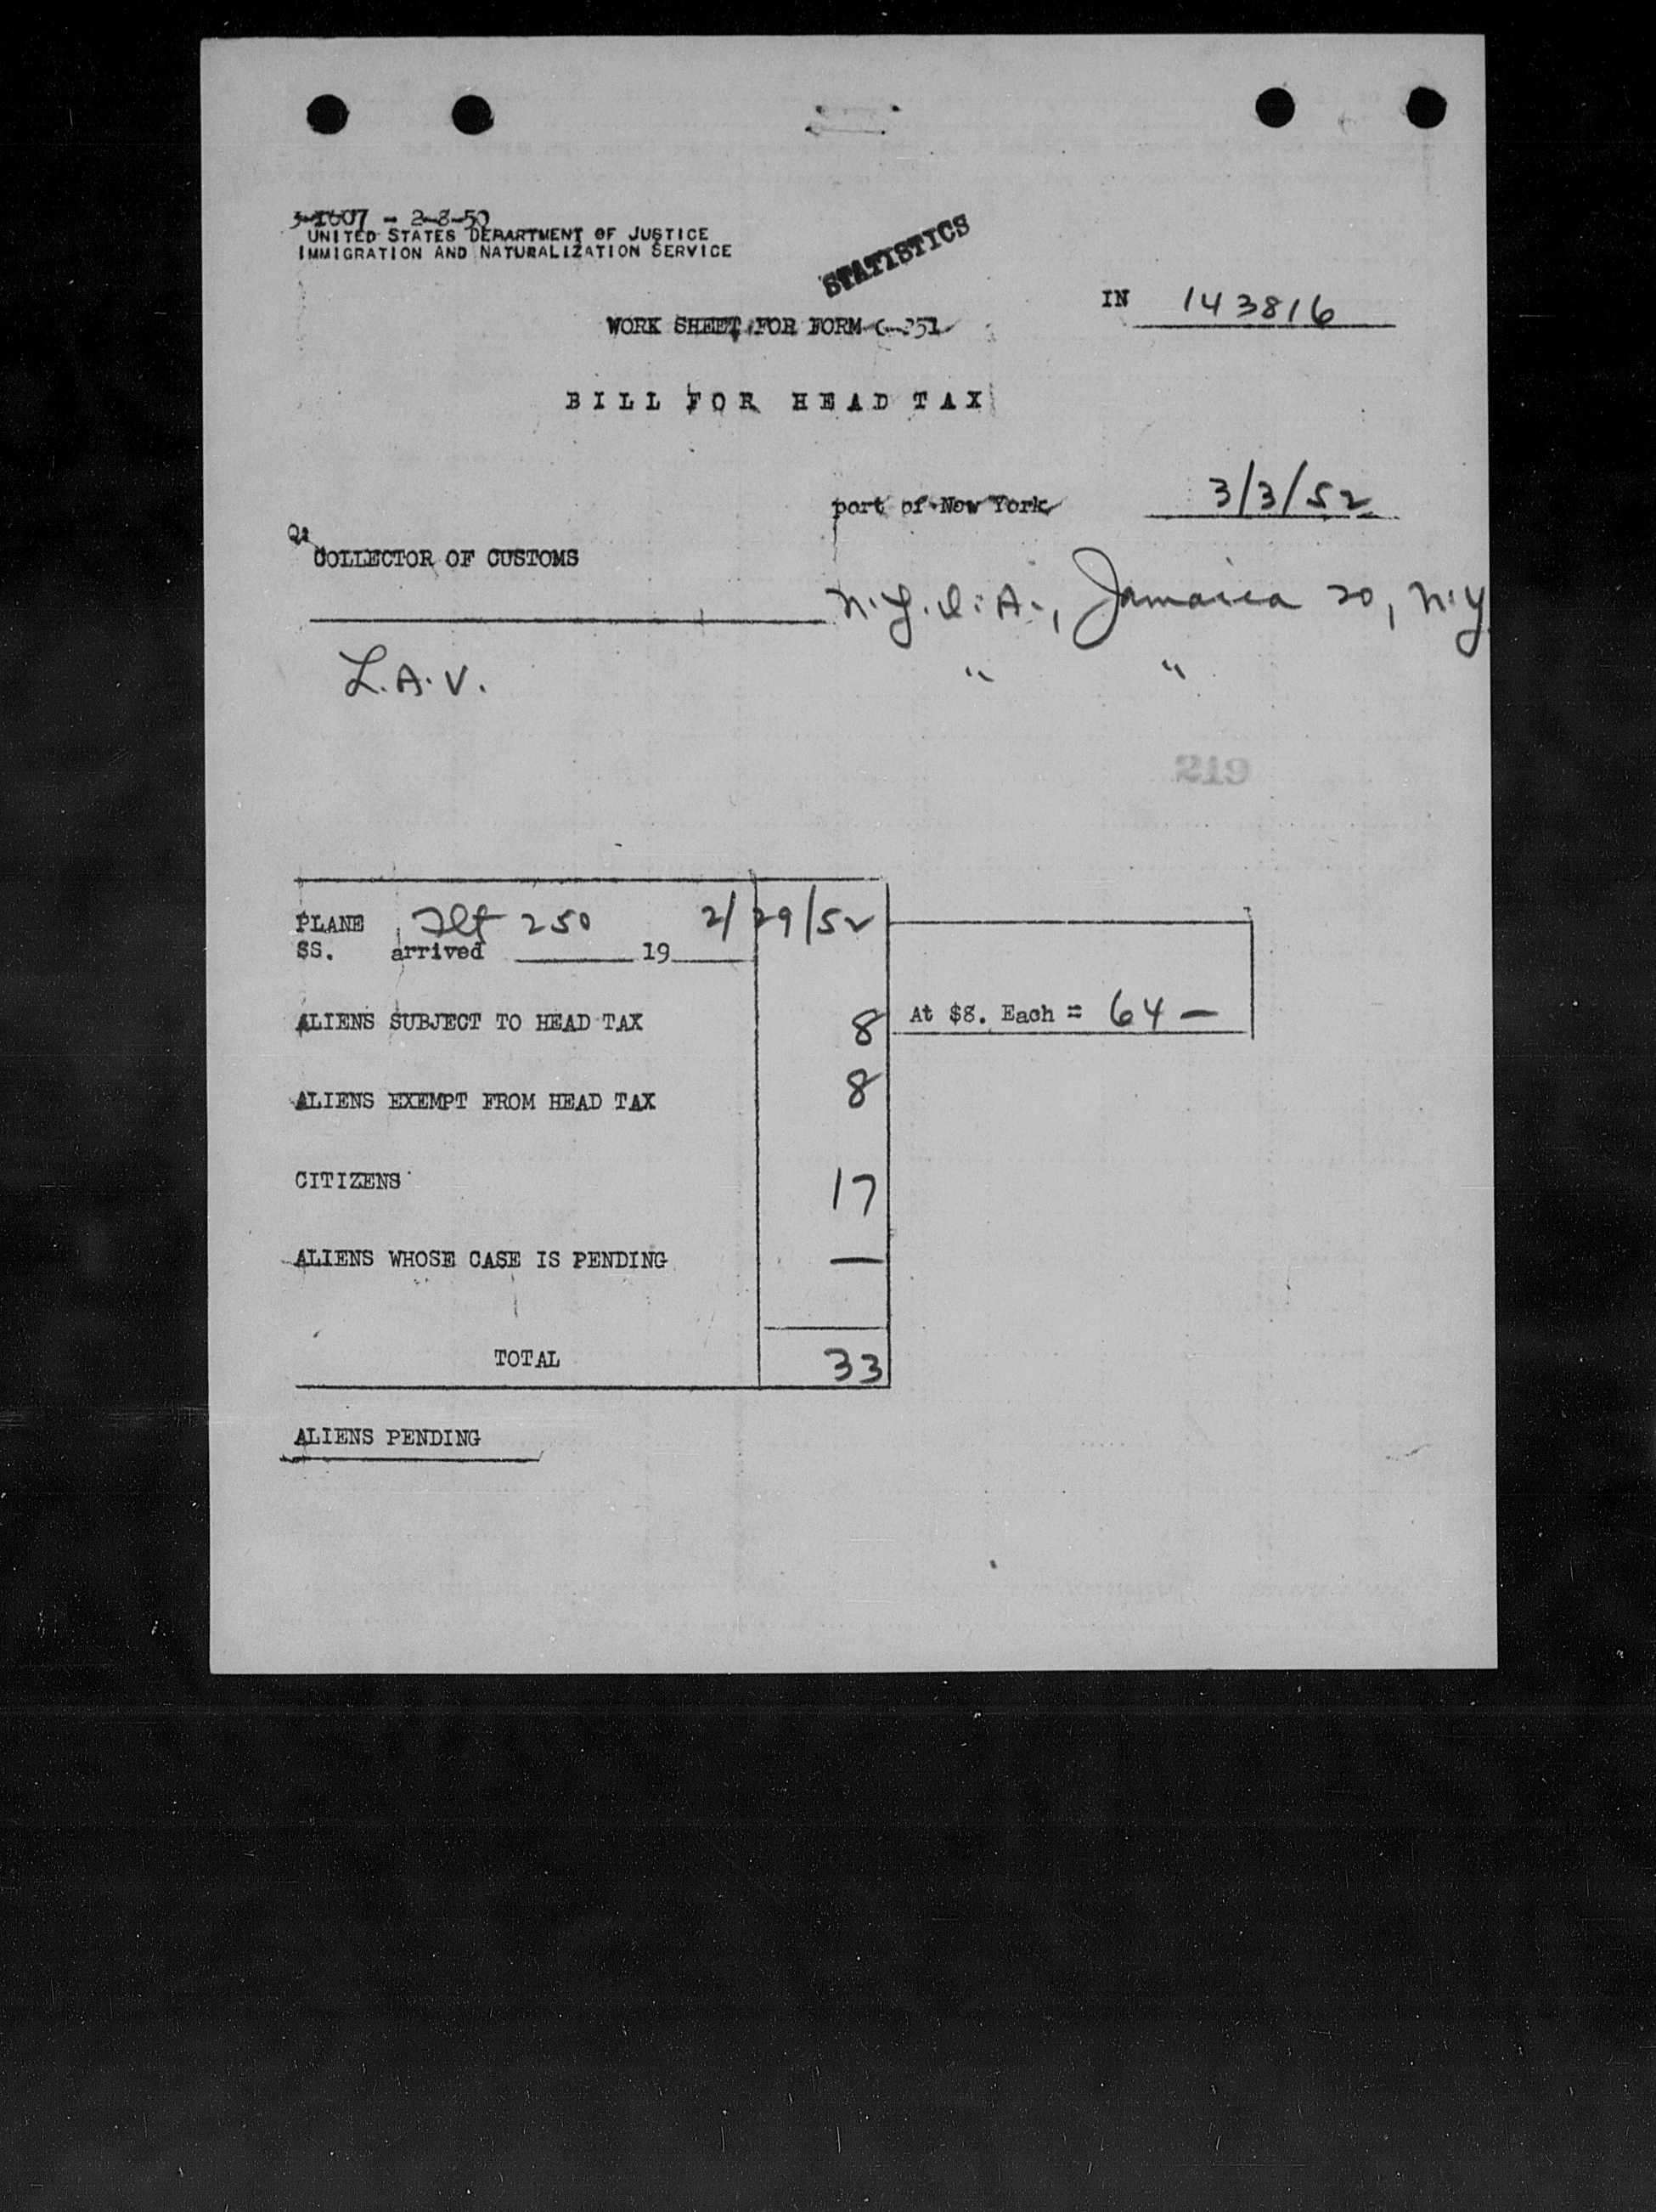 3-1607 - 2-8-50
UNITED STATES DEPARTMENT OF JUSTICE
IMMIGRATION AND NATURALIZATION SERVICE
STATISTICS
IN 143816
WORK SHEET FOR FORM G-251
BILL FOR HEAD TAX
port of New York 3/3/52
COLLECTOR OF CUSTOMS
N.Y.I.A., Jamaica 20, N.Y
L.A.V. " "
219
PLANE Flt 250 2/29/52
SS. arrived 19
ALIENS SUBJECT TO HEAD TAX 8 At $8. Each = 64 —
ALIENS EXEMPT FROM HEAD TAX 8
CITIZENS 17
ALIENS WHOSE CASE IS PENDING —
TOTAL 33
ALIENS PENDING